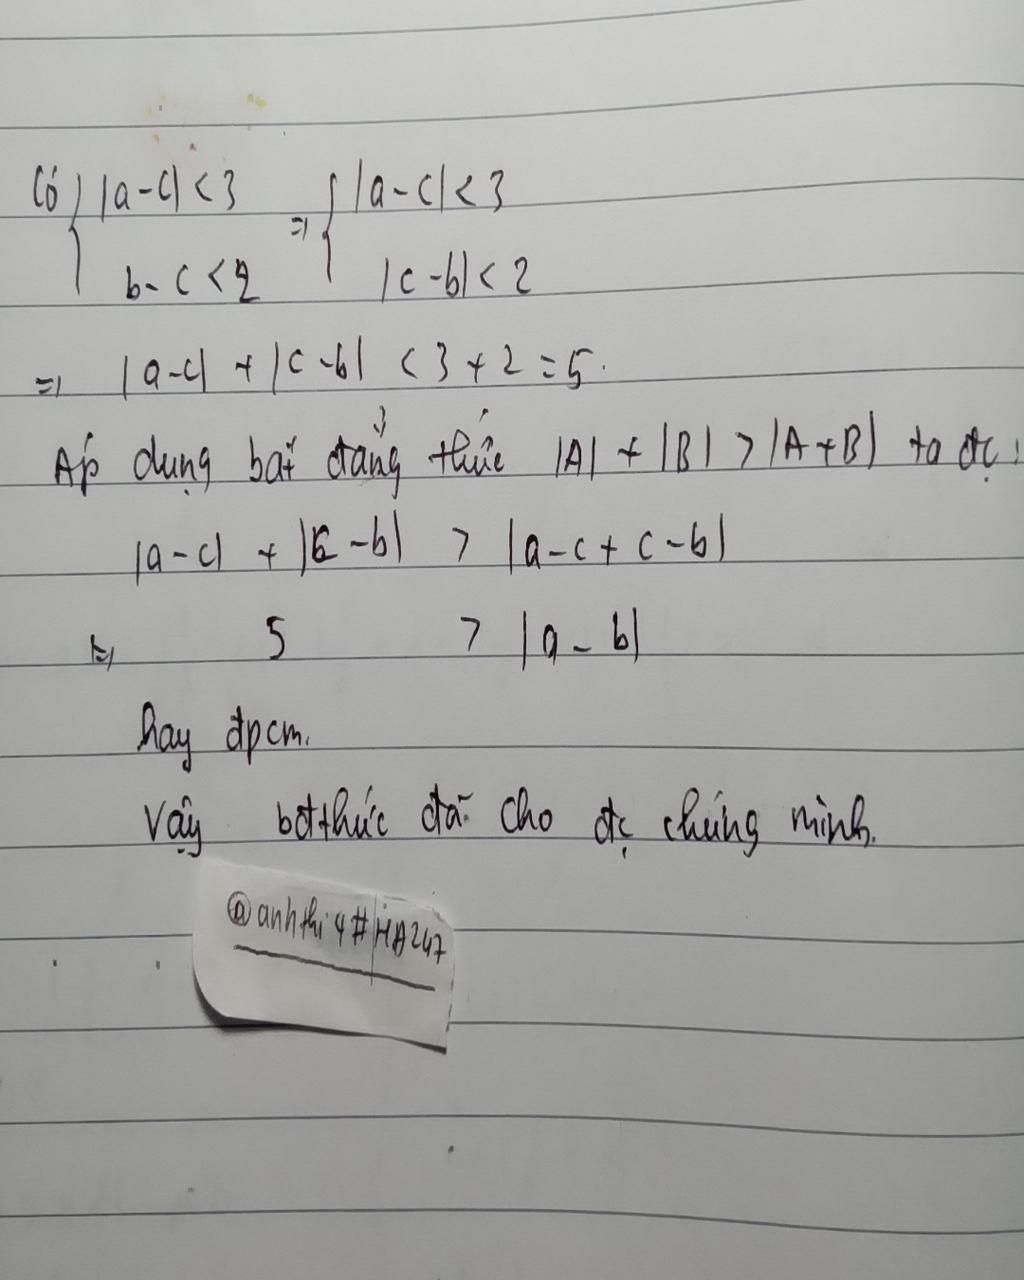 Có { |a-c| < 3 => { |a-c| < 3
b-c < 2 |c-b| < 2
=> |a-c| + |c-b| < 3 + 2 = 5.
Áp dụng bất đẳng thức |A| + |B| > |A+B| ta đc:
|a-c| + |c-b| > |a-c+c-b|
5 > |a-b|
hay đpcm.
Vậy bđthức đã cho đc chứng minh.
@anhthi4#HA247